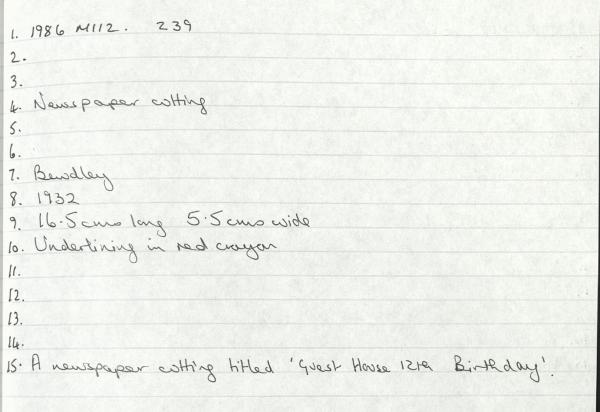 1. 1986 M112. 239
2.
3.
4. Newspaper cutting
5.
6.
7. Bewdley
8. 1932
9. 16.5cms long 5.5cms wide
10. Underlining in red crayon
11.
12.
13.
14.
15. A newspaper cutting titled 'Guest House 12th Birthday'.